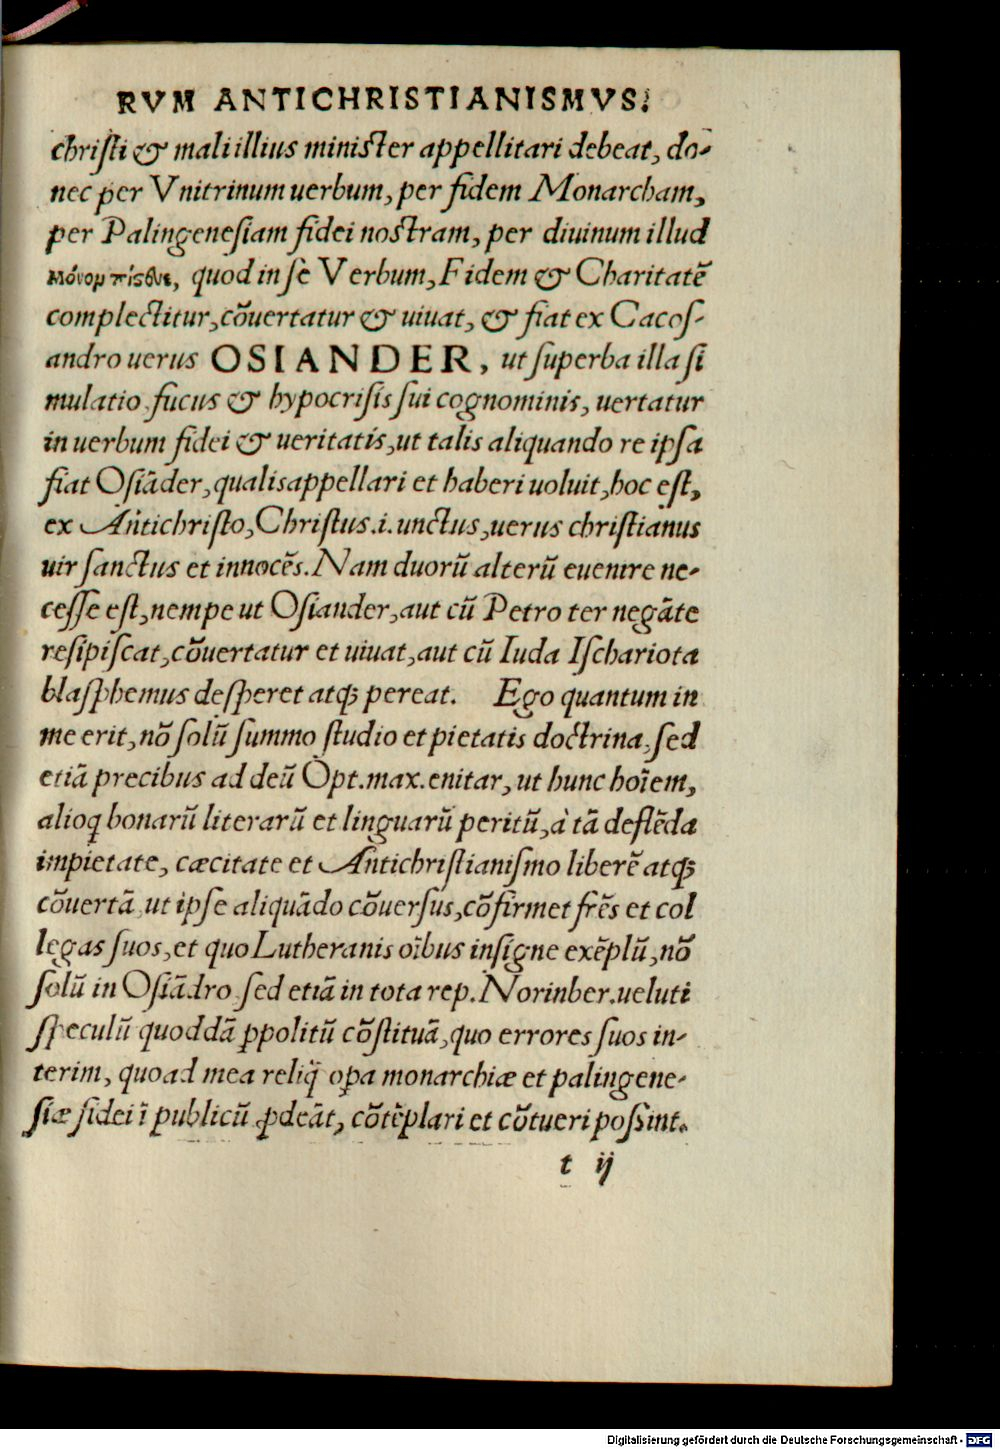 RVM ANTICHRISTIANISMVS.
christi & mali illius minister appellitari debeat, do-
nec per Vnitrinum uerbum, per fidem Monarcham,
per Palingenesiam fidei nostram, per diuinum illud
quod in se Verbum, Fidem & Charitatē
complectitur, cōuertatur & uiuat, & fiat ex Cacos-
andro uerus OSIANDER, ut superba illa si
mulatio, fucus & hypocrisis sui cognominis, uertatur
in uerbum fidei & ueritatis, ut talis aliquando re ipsa
fiat Osiāder, qualis appellari et haberi uoluit, hoc est,
ex Antichristo, Christus .i. unctus, uerus christianus
uir sanctus et innocēs. Nam duorū alterū euenire ne-
cesse est, nempe ut Osiander, aut cū Petro ter negāte
resipiscat, cōuertatur et uiuat, aut cū Iuda Ischariota
blasphemus desperet atq; pereat. Ego quantum in
me erit, nō solū summo studio et pietatis doctrina, sed
etiā precibus ad deū Opt. max. enitar, ut hunc hoīem,
alioq bonarū literarū et linguarū peritū, à tā deflēda
impietate, cæcitate et Antichristianismo liberē atq;
cōuertā, ut ipse aliquādo cōuersus, cōfirmet frēs et col
legas suos, et quo Lutheranis oībus insigne exēplū, nō
solū in Osiādro, sed etiā in tota rep. Norinber. ueluti
speculū quoddā ꝓpolitū cōstituā, quo errores suos in-
terim, quoad mea reliq̄ oꝑa monarchiæ et palingene-
siæ fidei ī publicū ꝓdeāt, cōtēplari et cōtueri possint.
t ij
Digitalisierung gefördert durch die Deutsche Forschungsgemeinschaft - DFG